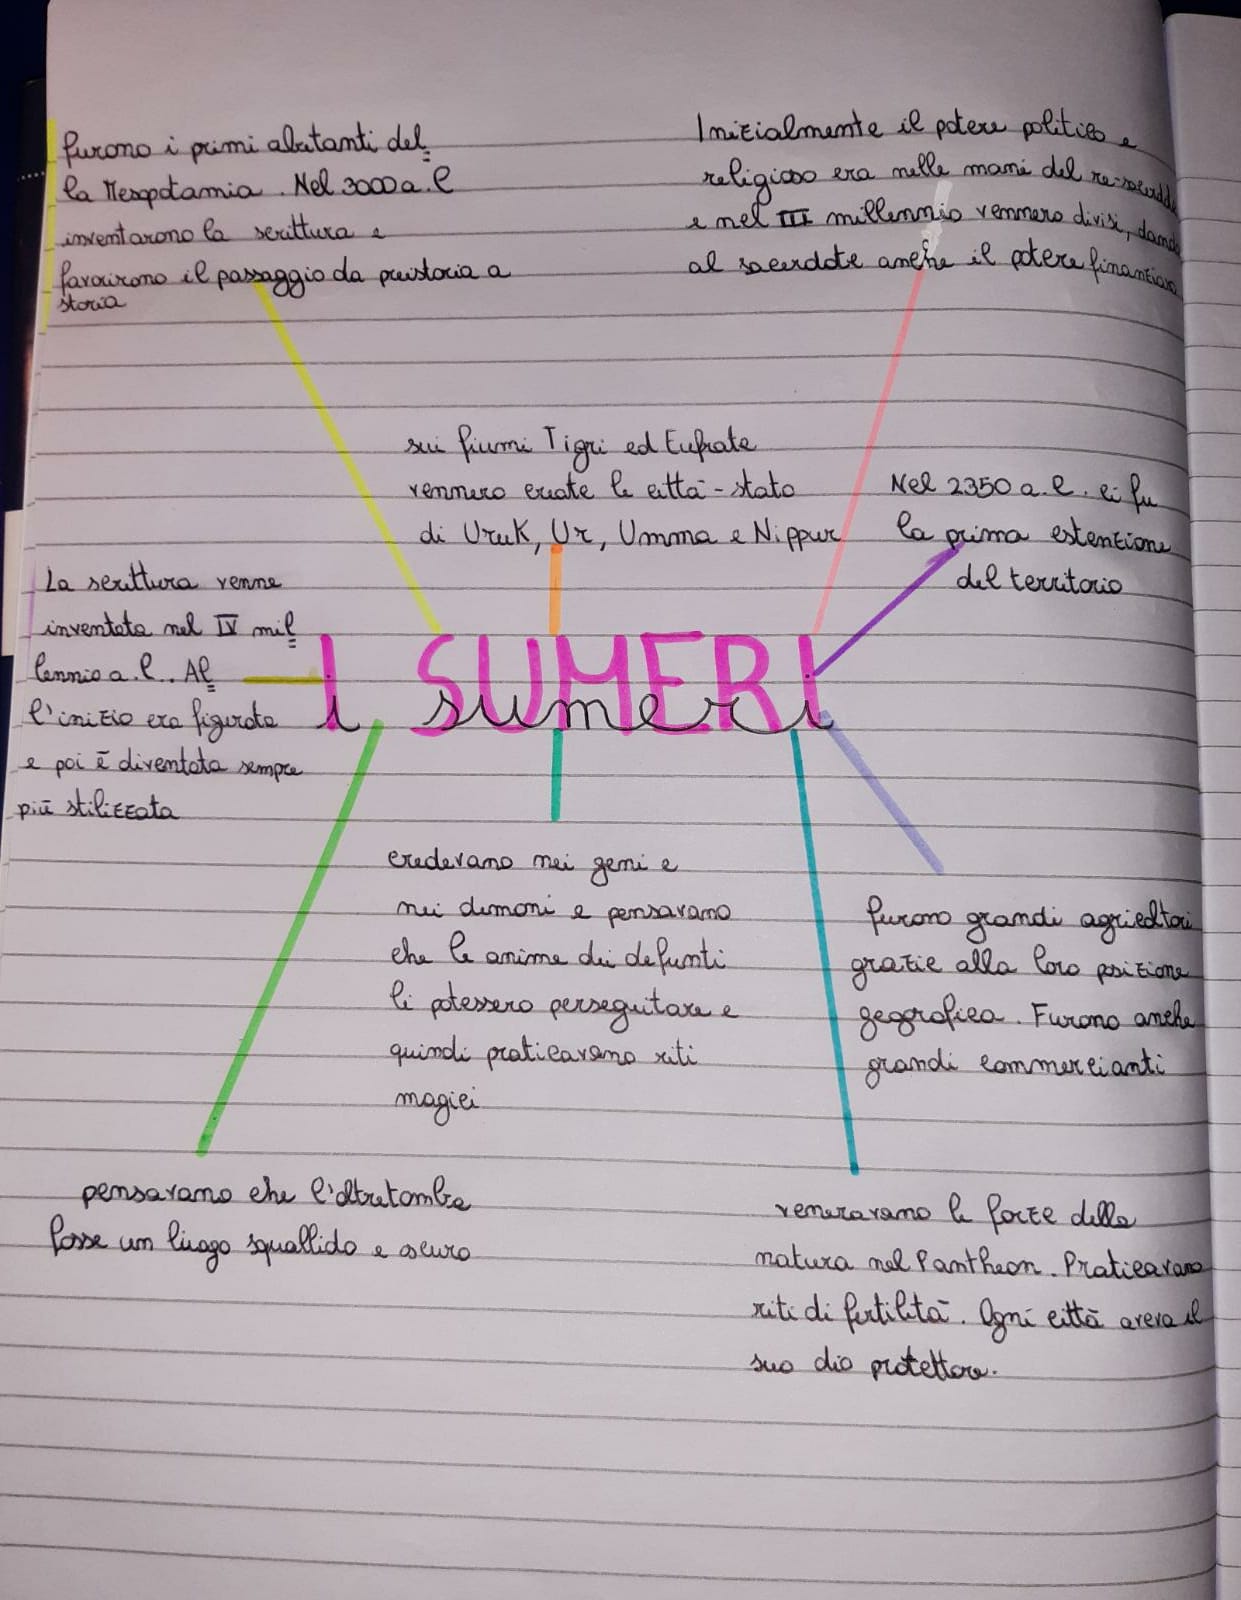 furono i primi abitanti del
la Mesopotamia. Nel 3000 a.C
inventarono la scrittura e
favorirono il passaggio da preistoria a
storia
Inizialmente il potere politico e
religioso era nelle mani del re-sacerdote
e nel III millennio vennero divisi, dando
al sacerdote anche il potere finanziario
sui fiumi Tigri ed Eufrate
vennero create le città-stato
di Uruk, Ur, Umma e Nippur
Nel 2350 a.C. ci fu
la prima estenzione
del territorio
La scrittura venne
inventata nel IV mil
lennio a.C.. Al
l'inizio era figurata
e poi è diventata sempre
più stilizzata
I SUMERI
i sumeri
credevano nei geni e
nei demoni e pensavano
che le anime dei defunti
li potessero perseguitare e
quindi praticavano riti
magici
furono grandi agricoltori
grazie alla loro posizione
geografica. Furono anche
grandi commercianti
pensavano che l'oltretomba
fosse un luogo squallido e oscuro
veneravano le forze della
natura nel Pantheon. Praticavano
riti di fertilità. Ogni città aveva il
suo dio protettore.